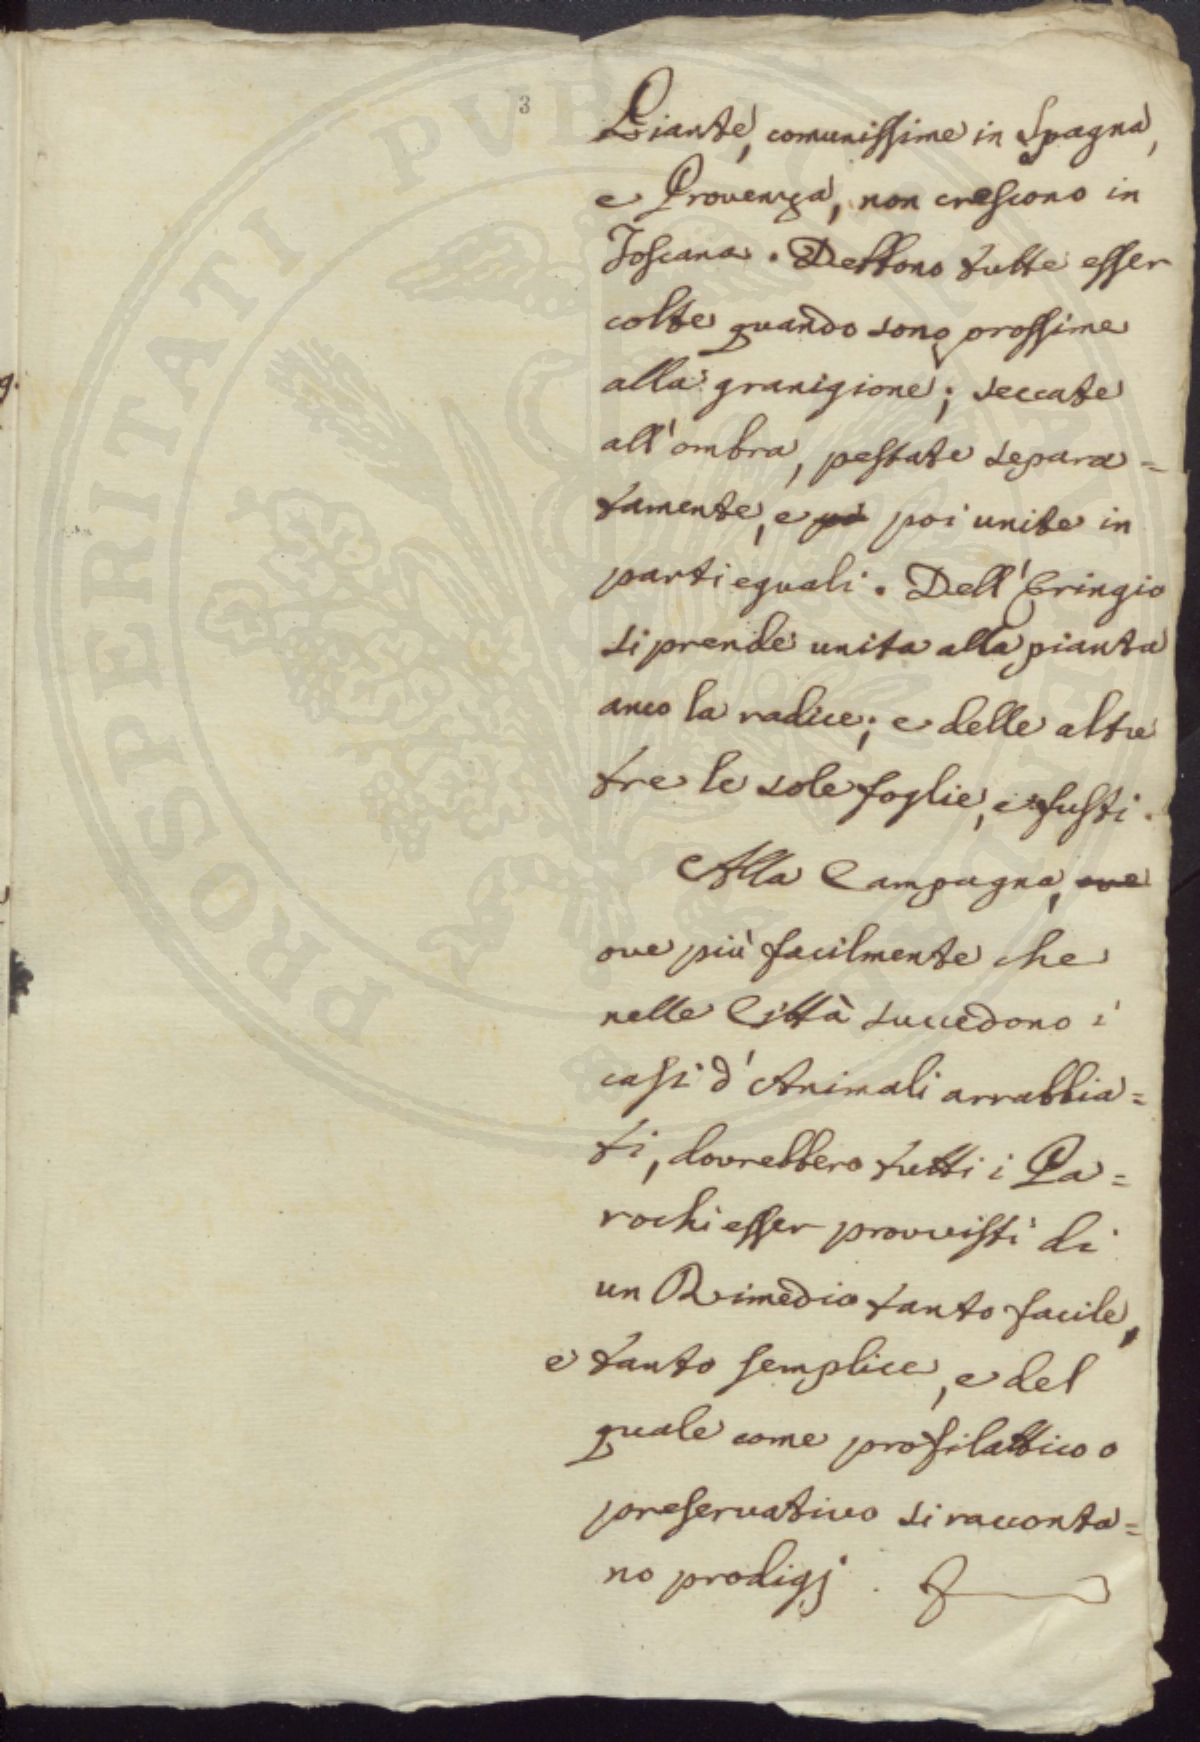 3
Piante, comunissime in Spagna,
e Provenza, non crescono in
Toscana. Debbono tutte esser
colte quando sono prossime
alla granigione; seccate
all'ombra, pestate separa=
tamente, e poi unite in
parti eguali. Dell'Eringio
si prende unita alla pianta
anco la radice; e delle altre
tre le sole foglie, e fusti.
Alla Campagna, ove
ove più facilmente che
nelle Città succedono i
casi d'Animali arrabbia=
ti, dovrebbero tutti i Pa=
rochi esser provvisti di
un Rimedio tanto facile,
e tanto semplice, e del
quale come profilattico o
preservativo si racconta=
no prodigj.
PROSPERITATI PUBLICAE